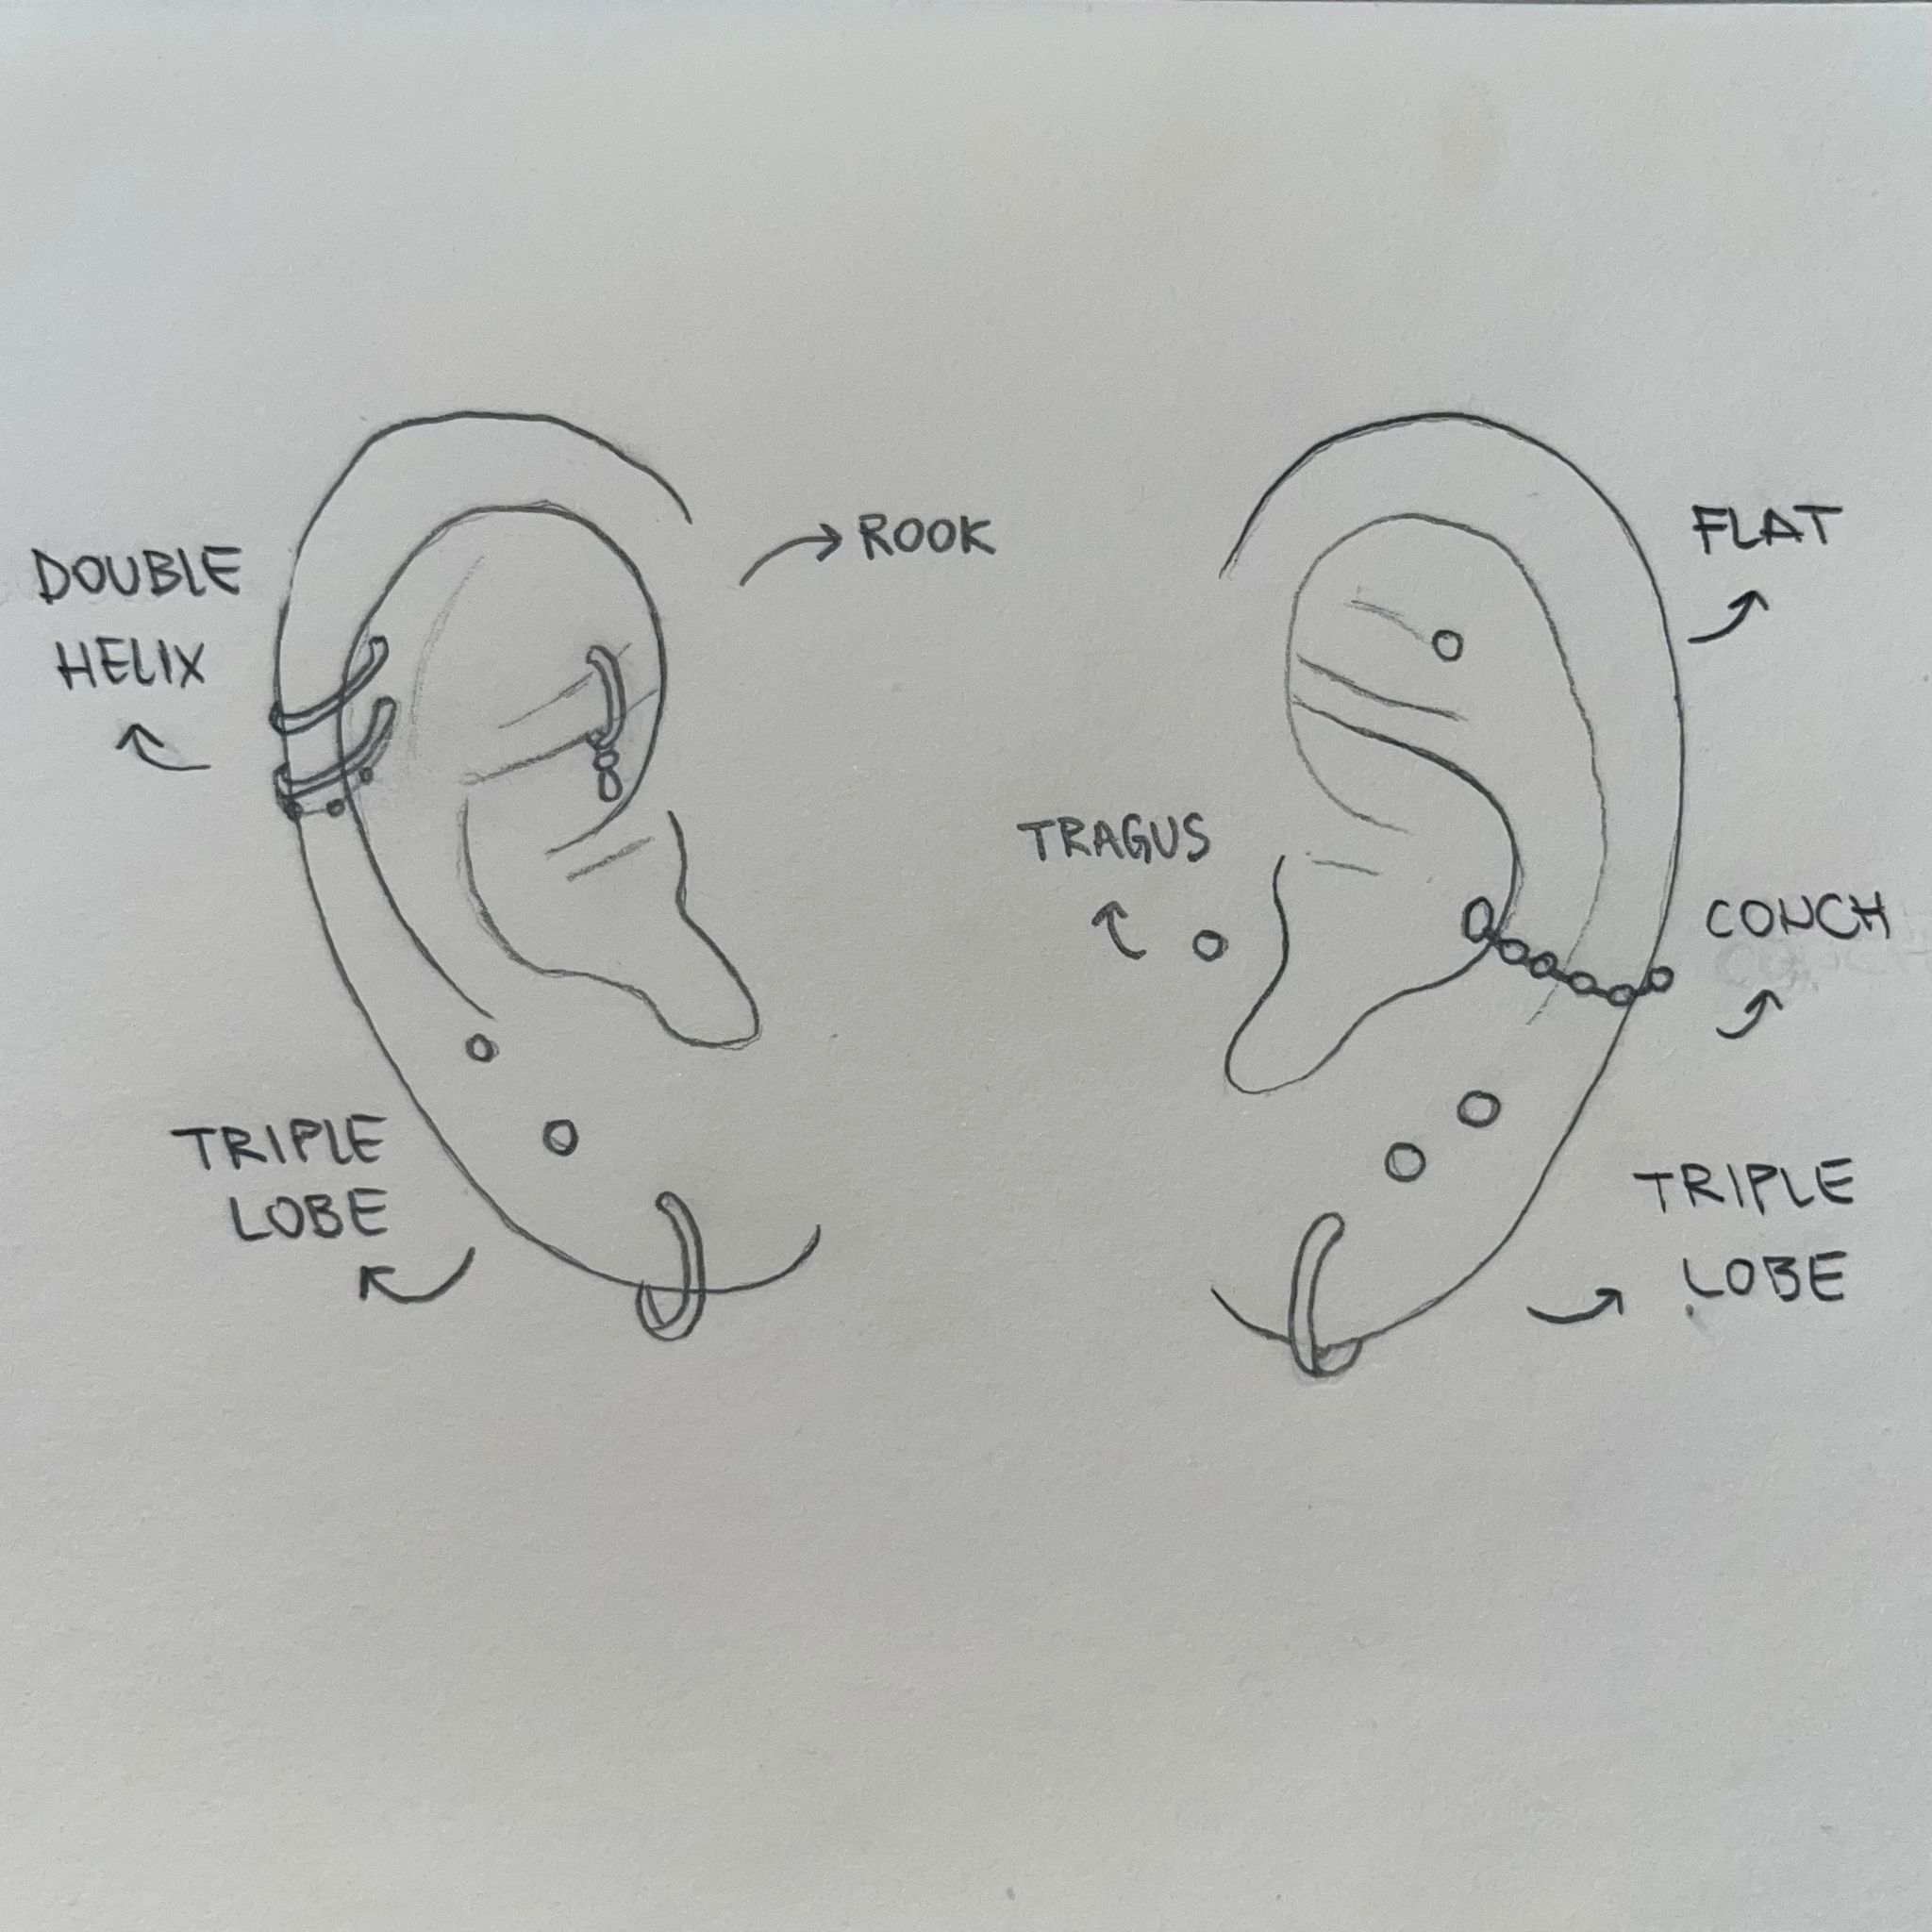 DOUBLE
HELIX
ROOK
TRIPLE
LOBE
FLAT
TRAGUS
CONCH
TRIPLE
LOBE